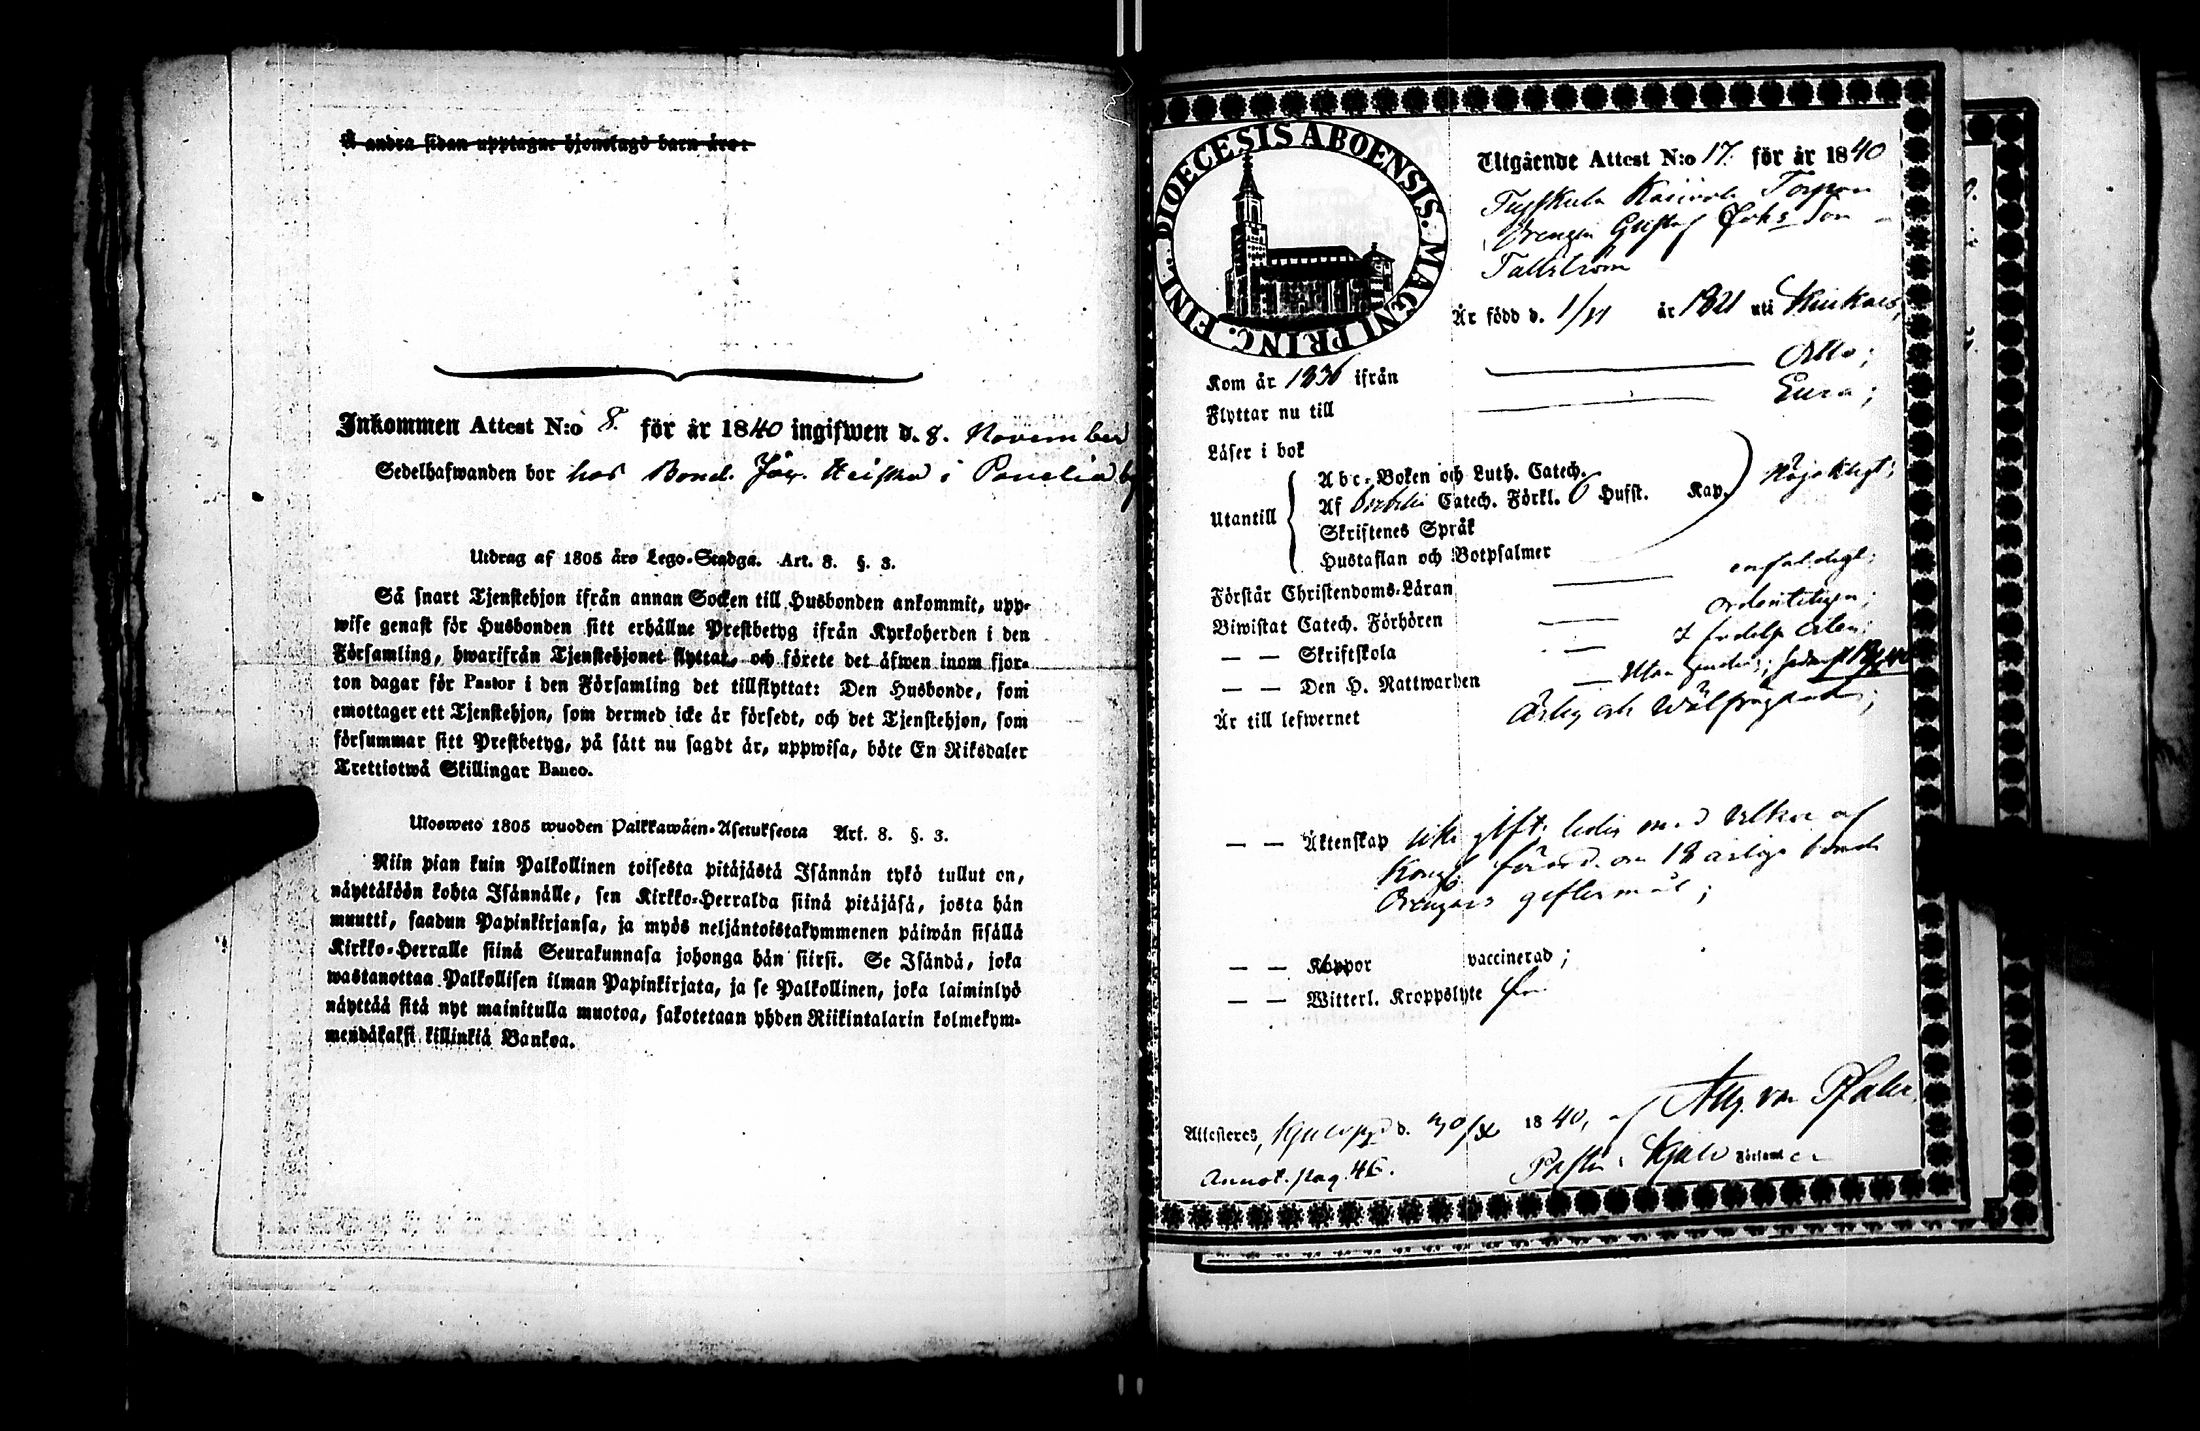 Å andra sidan upptagne hjonelags barn äro:
Inkommen Attest N:o 8. för år 1840 ingifwen d. 8. November
Sedelhafwanden bor hos Bond. Heiska i Panelia by
Utdrag af 1805 års Lego-Stadga. Art. 8. §. 3.
Så snart Tjenstehjon ifrån annan Socken till Husbonden ankommit, upp-
wise genast för Husbonden sitt erhållne Prestbetyg ifrån Kyrkoherden i den
Församling, hwarifrån Tjenstehjonet flyttat, och förete det äfwen inom fjor-
ton dagar för Pastor i den Församling det tillflyttat: Den Husbonde, som
emottager ett Tjenstehjon, som dermed icke är försedt, och det Tjenstehjon, som
försummar sitt Prestbetyg, på sätt nu sagdt är, uppwisa, böte En Riksdaler
Trettiotwå Skillingar Banco.
Ulosweto 1805 wuoden Palkkawäen-Asetuksesta Art. 8. §. 3.
Niin pian kuin Palkollinen toisesta pitäjästä Isännän tykö tullut on,
näyttäköön kohta Isännälle, sen Kirkko-Herralda siinä pitäjäsä, josta hän
muutti, saadun Papinkirjansa, ja myös neljäntoistakymmenen päiwän sisällä
Kirkko-Herralle siinä Seurakunnasa johonga hän siirsi. Se Isändä, joka
wastanottaa Palkollisen ilman Papinkirjata, ja se Palkollinen, joka laiminlyö
näyttää sitä nyt mainitulla muotoa, sakotetaan yhden Riikintalarin kolmekym-
mendäkaksi killinkiä Bankoa.
DIOECESIS ABOENSIS. MAGNI PRINC. FINL.
Utgående Attest N:o 17. för år 1840
Torpar
Drengen Gustaf Johsson
Tallström
Är född d. 1/11 år 1821 uti Kiukais,
Kom år 1836 ifrån Dito;
Flyttar nu till Eura;
Läser i bok
Utantill
Abc-Boken och Luth. Catech.
Af Catech. Förkl. 6 Hufst. Kap. Nöjaktigt;
Skriftenes Språk
Hustaflan och Botpsalmer
Förstår Christendoms-Läran enfaldigt;
Biwistat Catech. Förhören ordentligen;
— — Skriftskola
— — Den H. Nattwarden
Är till lefwernet Ärlig och Wälfrägdad;
— — Äktenskap icke gift; ledig med wilkor af
Kongl. förord. om 18 åriga bonde
Drengars giftermål;
— — Koppor vaccinerad;
— — Witterl. Kroppslyte fri
Attesteres, d. 30/X 1840, af
Annot. pag. 46. Pastor i Församl